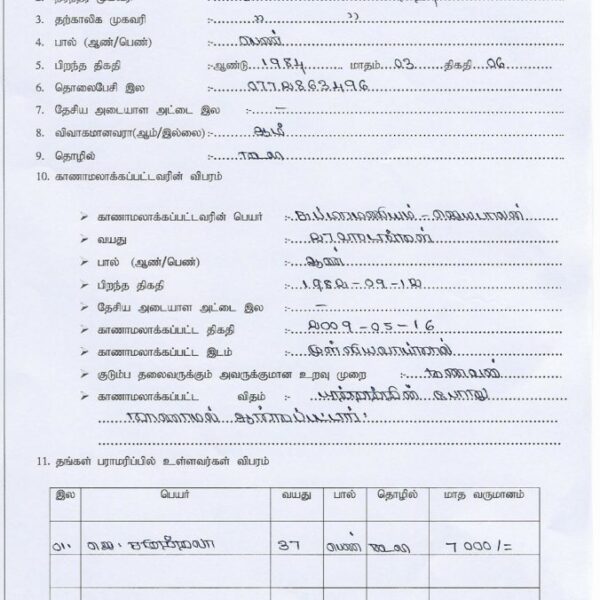 3. தற்காலிக முகவரி :- ,, ,,
4. பால் (ஆண்/பெண்) :- பெண்
5. பிறந்த திகதி :-ஆண்டு 1984 மாதம் 03 திகதி 06
6. தொலைபேசி இல :- 0772863496
7. தேசிய அடையாள அட்டை இல :- –
8. விவாகமானவரா(ஆம்/இல்லை) :- ஆம்
9. தொழில் :-
10. காணாமலாக்கப்பட்டவரின் விபரம்
➢ காணாமலாக்கப்பட்டவரின் பெயர் :-
➢ வயது :-
➢ பால் (ஆண்/பெண்) :- ஆண்
➢ பிறந்த திகதி :- 1982-09-12
➢ தேசிய அடையாள அட்டை இல :- –
➢ காணாமலாக்கப்பட்ட திகதி :- 2009-05-16
➢ காணாமலாக்கப்பட்ட இடம் :- முள்ளிவாய்கால்
➢ குடும்ப தலைவருக்கும் அவருக்குமான உறவு முறை :- கணவன்
➢ காணாமலாக்கப்பட்ட விதம் :- யுத்தத்தின் போது
காணாமல் ஆக்கப்பட்டார்.
11. தங்கள் பராமரிப்பில் உள்ளவர்கள் விபரம்
இல பெயர் வயது பால் தொழில் மாத வருமானம்
01. 37 பெண் 7000/=